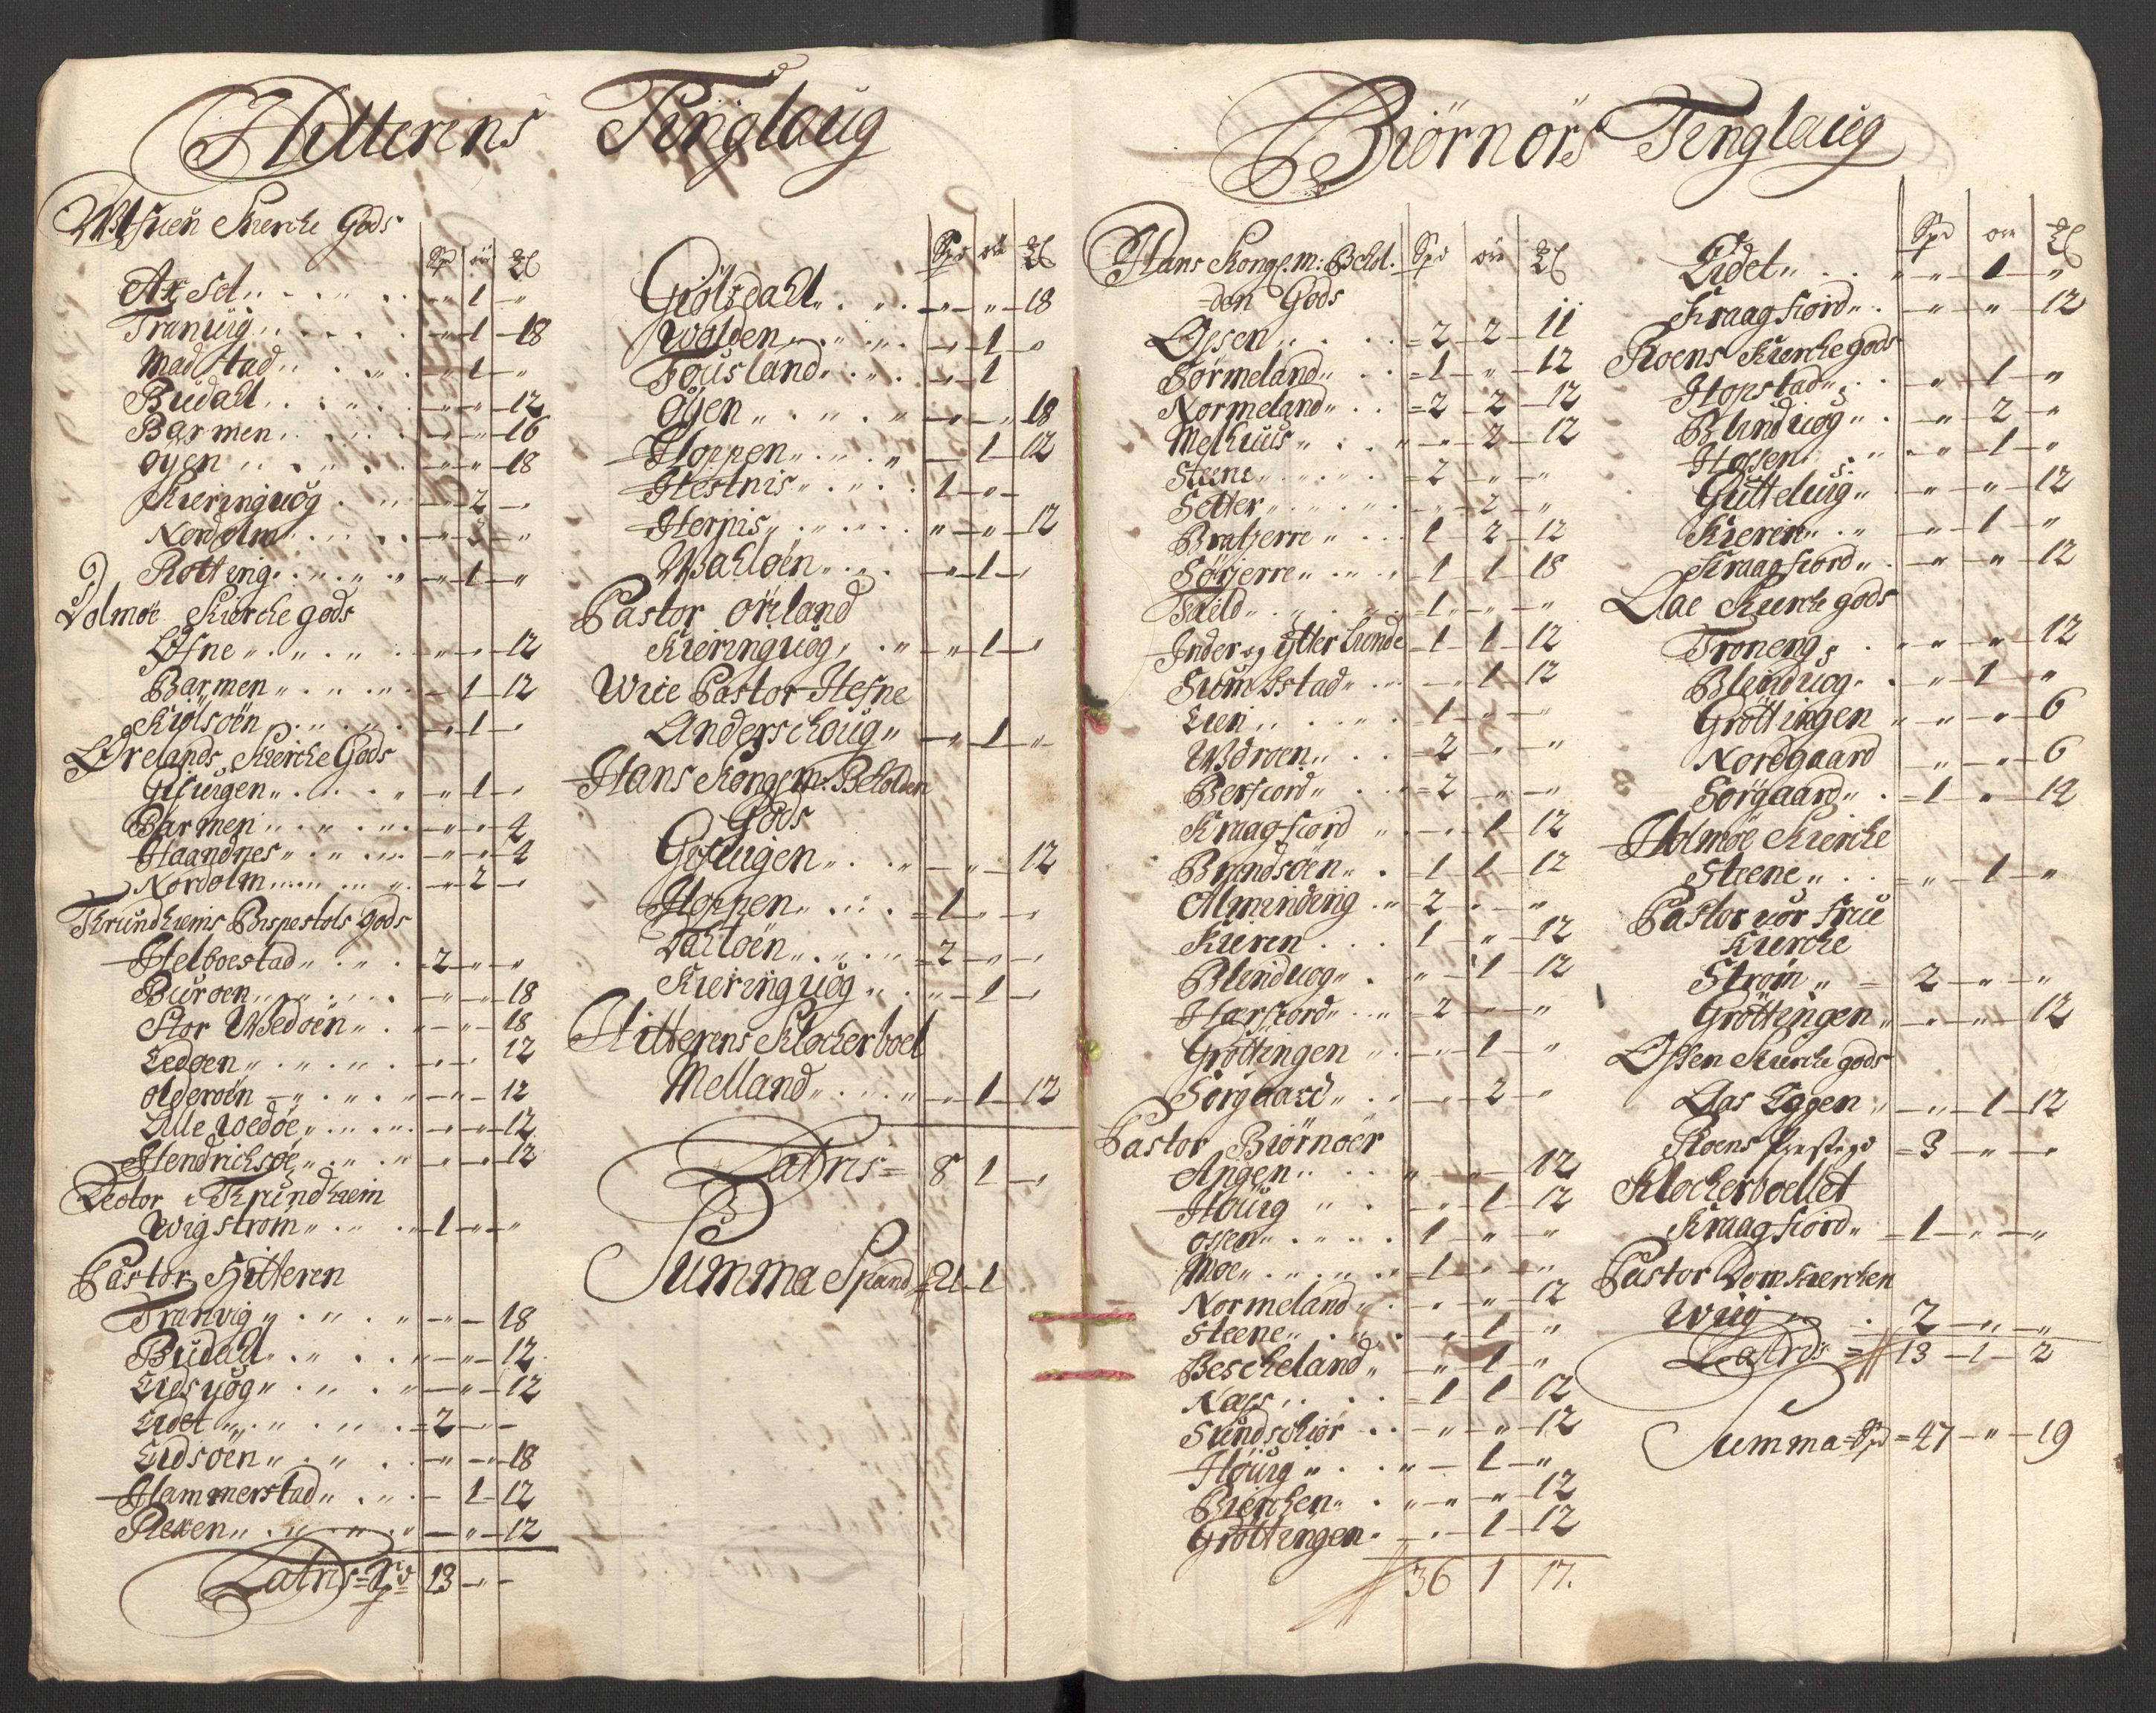 Hitterens Tinglaug
Kierche Gods
Spd øre
Axsel 1
Tranuig 1 18
Madstad 1
Budall 12
Barmen 16
Oyen 18
Kieringuog 2
Nordolm
Rotting 1
Dolmøe Kierche gods
Ofne 12
Barmen 1 12
Kiølsøen 1
Ørelands Kierche Gods
Gifuigen 1
Barmen 4
Haandnes 4
Nordolm 2
Thrundhiems Bispestols gods
Helboestad 2
Burøen 18
Stor Wedøen 18
Ledøen 12
Olderøen 12
Lille Wedøe 12
Hendrichsøe 12
Lector i Thrundhiem
Wigstrøm 1
Pastor Hitteren
Tranvig 18
Budall 12
Eidsuog 12
Eidet 2
Eidsøen 18
Hammerstad 1 12
Rexen 12
Latris Spd 13
Spd øre
Giølsdall 18
Wolden 1
Fousland 1
Öÿen 18
Hoppen 1 12
Hestnis 1
Herpis 12
Wahløen 1
Pastor Örland
Kieringuog 1
Wice Pastor Hefne
Anderschoug 1
Hans Kongl. M. Beholden
Gods
Gifuigen 12
Hoppen 1
Dahløen 2
Kieringuog 1
Hitterens Klocherboel
Melland 1 12
Latris 8 1
Summa Spand 21 1
Biørnørs Tinglaug
Hans Kongl. m: Behol. Spd øre
den Gods
Ofsen 2 2 11
Sørmeland 1 12
Normeland 2 2 12
Melhuus 2 12
Steene 2
Setter 2
Bratjerre 1 2 12
Sørjerre 1 1 18
Field 1
Inder og Ytter Lunde 1 1 12
Sumbstad 1 12
Lien 1
Wdroen 2
Berfiord 2
Kraagfiord 1 12
Brandsøen 1 1 12
Alminding 2
Kieren 1 12
Blinduog 1 12
Harfiord 2
Grøttingen 1
Sørgaard 2
Pastor Biørnøer
Angen 12
Houig 1 12
Ossen 1
Moe 1
Normeland 12
Steene 1
Bescheland 1
Næss 1 1 12
Sundschier 12
Houig 1
Bierchen 12
Grøttingen 1 12
36 1 17.
Spd øre
Eidet 1
Kraagfiord 12
Roens Kierche gods
Hopstad 1
Blinduog 2
Hossen 1
Gutteluig 12
Kieren 1
Kraagfiord 12
Aae Kierche gods
Troneng 12
Blinduog 1
Grøttingen 6
Nordgaard 6
Sørgaard 1 12
Holmøe Kierche
Steene 1
Pastor uor frue
Kierche
Strøm 2
Grøttingen 12
Ossen Kierche gods
Aas Eggen 1 12
Roens Prestegd 3
Klocherboellet
Kraagfiord 1
Pastor Domkierchen
Wiig 2
Latris 13 1 2
Summa Spd 47 19